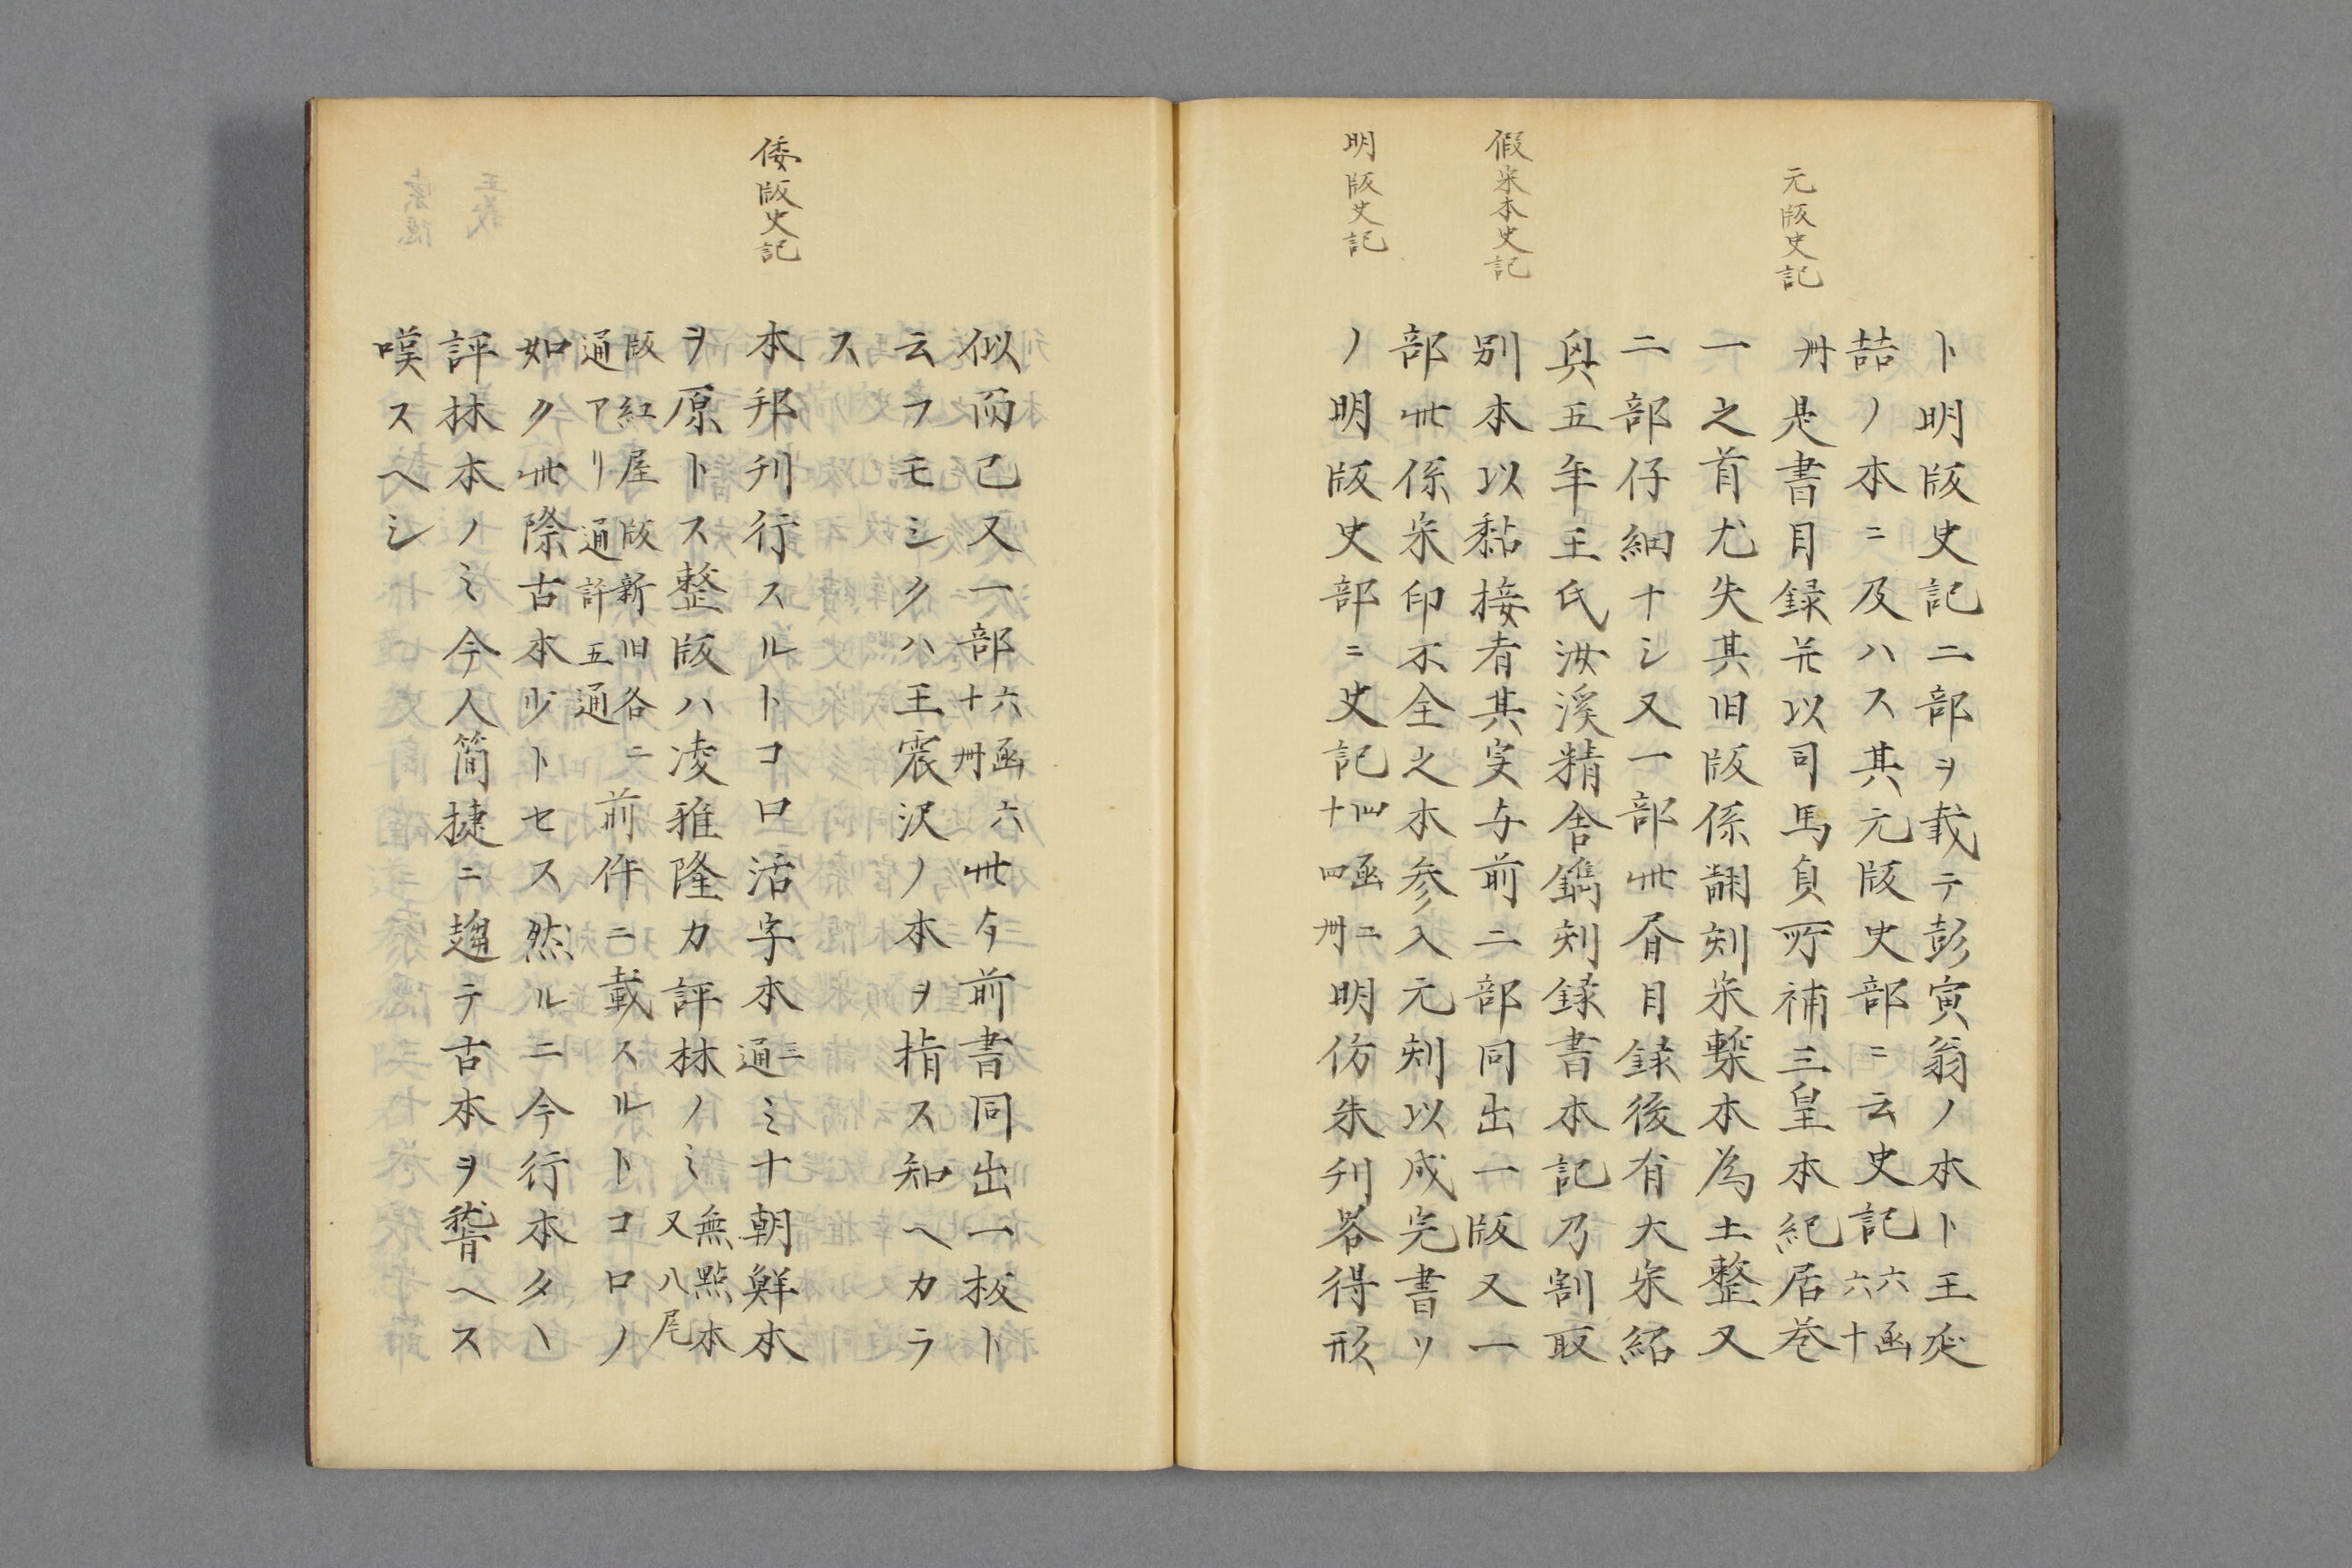 元版史記
假宋本史記
明版史記
ト明版史記二部ヲ載テ彭寅翁ノ本ト王延
喆ノ本ニ及ハス其元版史部ニ云史記六函六十
卌是書目録并以司馬貞所補三皇本紀居巻
一之首尤失其旧版係翻刻宋槧本為土整又
二部仔細ナシ又一部卌眉目録後有大宋紹
興五年王氏汝溪精舎鐫刻録書本記乃割取
別本以黏接者其実与前二部同出一版又一
部卌係宋印不全之本参入元刻以成完書リ
ノ明版史部ニ史記四函二十四卌明仿朱刊畧得形
倭版史記
似而已又一部六函六十卌卌今前書同出一板ト
云フモシクハ王震沢ノ本ヲ指ス知ヘカラ
ス
本邦刊行スルトコロ活字本三通ミナ朝鮮本
ヲ原トス整版ハ凌雅隆カ評林ノミ無點本又八尾
版紅屋版新旧各通アリ通計五通ニ前件ニ載スルトコロノ
如ク卌際古本少トセス然ルニ今行本タヽ
評林本ノミ今人簡捷ニ趨テ古本ヲ誓ヘス
嘆スヘシ